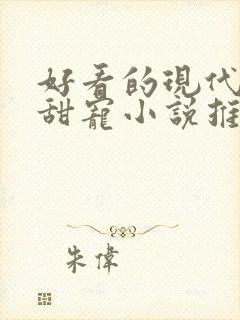 好看的現代
甜寵小説推
朱偉